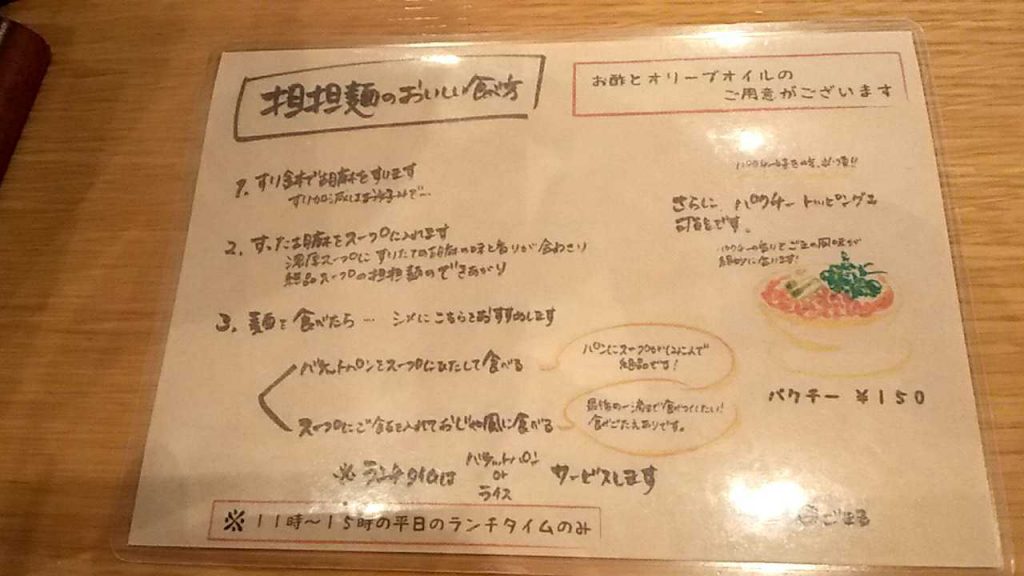 担担麺のおいしい食べ方
お酢とオリーブオイルの
ご用意がございます
1. すり鉢で胡麻をすります
すり加減はお好みで…
2. すった胡麻をスープに入れます
濃厚スープにすりたての胡麻の味と香りが合わさり
絶品スープの担担麺のできあがり
3. 麺を食べたら… シメにこちらをおすすめします
バケットパンをスープにひたして食べる
パンにスープがしみこんで
絶品です!
スープにご飯を入れておじや風に食べる
最後の一滴まで食べつくしたい!
食べごたえありです。
※ランチタイムは バケットパン or ライス サービスします
※11時〜15時の平日のランチタイムのみ
さらに パクチー トッピングも
可能です。
パクチーの香りとごまの風味が
絶妙に合います!
パクチー ¥150